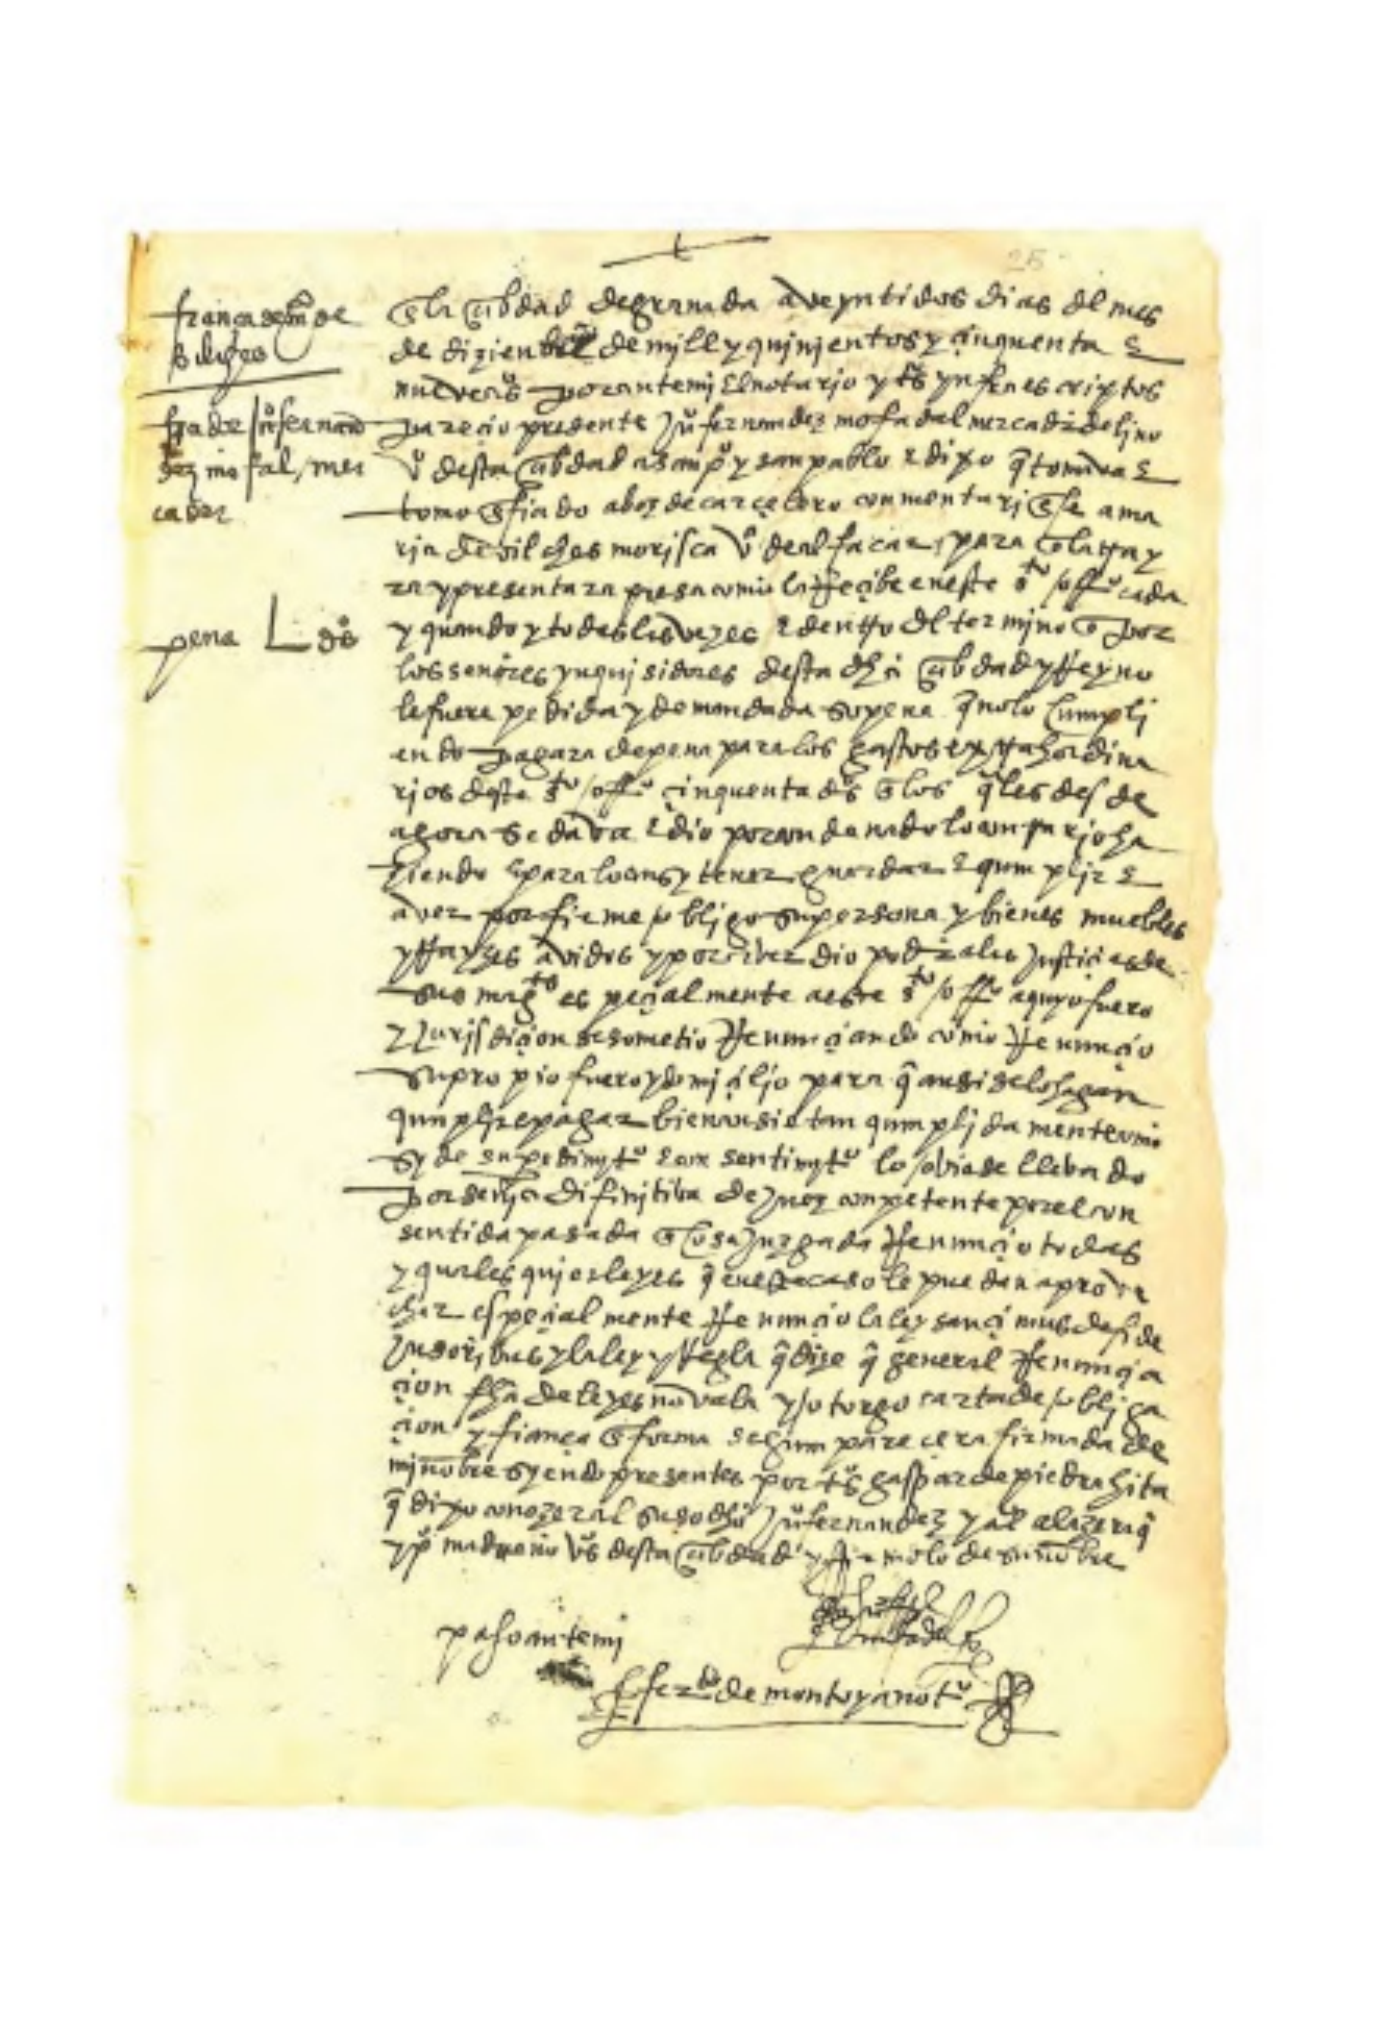 25
fiança de mª de
bilches
fiador juº fernan
dez mofal, mer
cader
pena L dºs
En la cibdad de granada a veynti dos dias del mes
de diziembre de mill y quinientos y cinquenta e
nueve aºs por ante mi el notario y tºs ynfraescriptos
parecio presente juº fernandez mofadal mercader de lino
vº desta cibdad a san pº y san pablo e dixo q tomava e
tomo en fiado a boz de carcelero comentariense a ma
ria de vilches morisca vº de alfacar, para q la tray
ra y presentara presa como la rrecibe en este sto offiº cada
y quando y todas las vezes e dentro del termino q por
los señores ynquisidores desta dha cibdad y rreyno
le fuere pedida y demandada so pena q no lo cumpli
endo pagara de pena para los gastos extrahordina
rios deste sto offº cinquenta dºs en los qles desde
agora se dava e dio por condenado lo contrario ha
ziendo e para lo ansy tener guardar e qumplir e
aver por firme obligo su persona y bienes muebles
y rrayzes avidos y por aver dio poder a las justicias de
sus magtes especialmente a este sto offº a quyo fuero
e jurisdicion se sometio rrenunciando como rrenuncio
su propio fuero y domicilio para q ansi se lo hagan
qumplir e pagar bien ansi e tan qumplidamente como
sy de su pedimytº e consentimytº lo oviese llebado
por senª difinitiba de juez conpetente por el con
sentida pasada en cosa juzgada rrenuncio todas
y qualesquier leyes q en este caso le puedan aprove
char especialmente rrenuncio la ley sancimus de fide
jusoribus y la ley y rregla q dize q general rrenuncia
cion fha de leyes no vala y otorgo carta de obliga
cion y fiança en forma segun parecera firmada de
mi nobre syendo presentes por tºs gaspar de piedrahita
q dixo conozer al susodho juº fernandez y al alazeraq
y pº madueño vºs desta cibdad y firmolo de su nobre
paso ante mi
ferdo de montoya notº